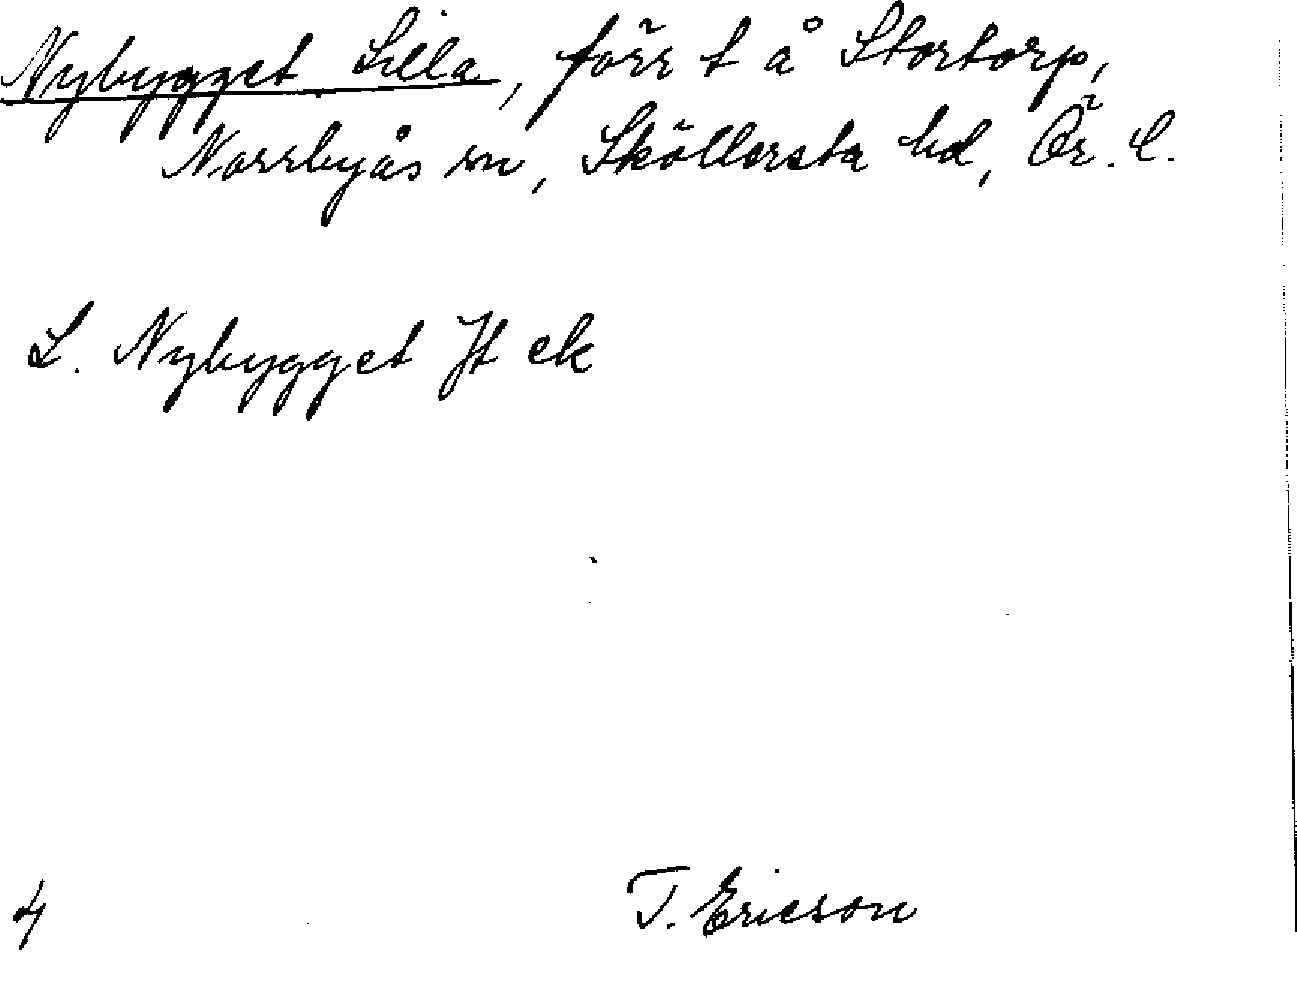 Nybygget Lilla, förr t å Stortorp,
Norrbyås sn, Sköllersta hd, Ör. l.
L. Nybygget Jt ek
4
T. Ericson